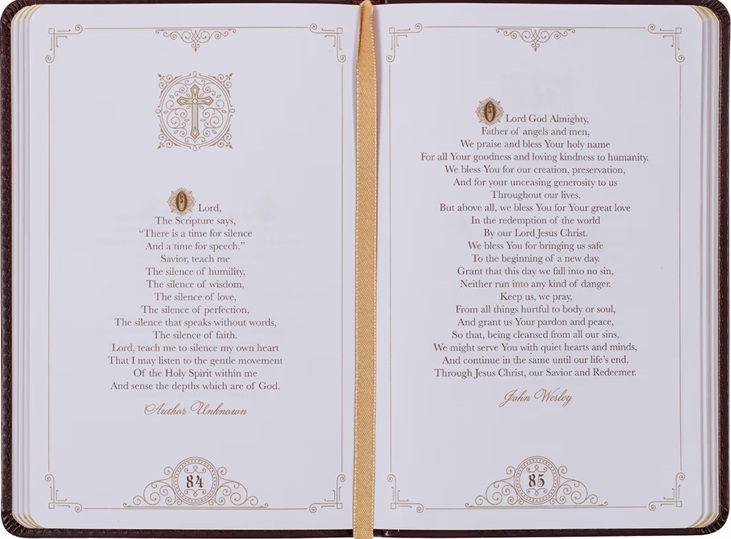 O Lord,
The Scripture says,
“There is a time for silence
And a time for speech.”
Savior, teach me
The silence of humility,
The silence of wisdom,
The silence of love,
The silence of perfection,
The silence that speaks without words,
The silence of faith.
Lord, teach me to silence my own heart
That I may listen to the gentle movement
Of the Holy Spirit within me
And sense the depths which are of God.
Author Unknown
84
O Lord God Almighty,
Father of angels and men,
We praise and bless Your holy name
For all Your goodness and loving kindness to humanity.
We bless You for our creation, preservation,
And for your unceasing generosity to us
Throughout our lives.
But above all, we bless You for Your great love
In the redemption of the world
By our Lord Jesus Christ.
We bless You for bringing us safe
To the beginning of a new day.
Grant that this day we fall into no sin,
Neither run into any kind of danger.
Keep us, we pray,
From all things hurtful to body or soul,
And grant us Your pardon and peace,
So that, being cleansed from all our sins,
We might serve You with quiet hearts and minds,
And continue in the same until our life’s end,
Through Jesus Christ, our Savior and Redeemer.
John Wesley
85